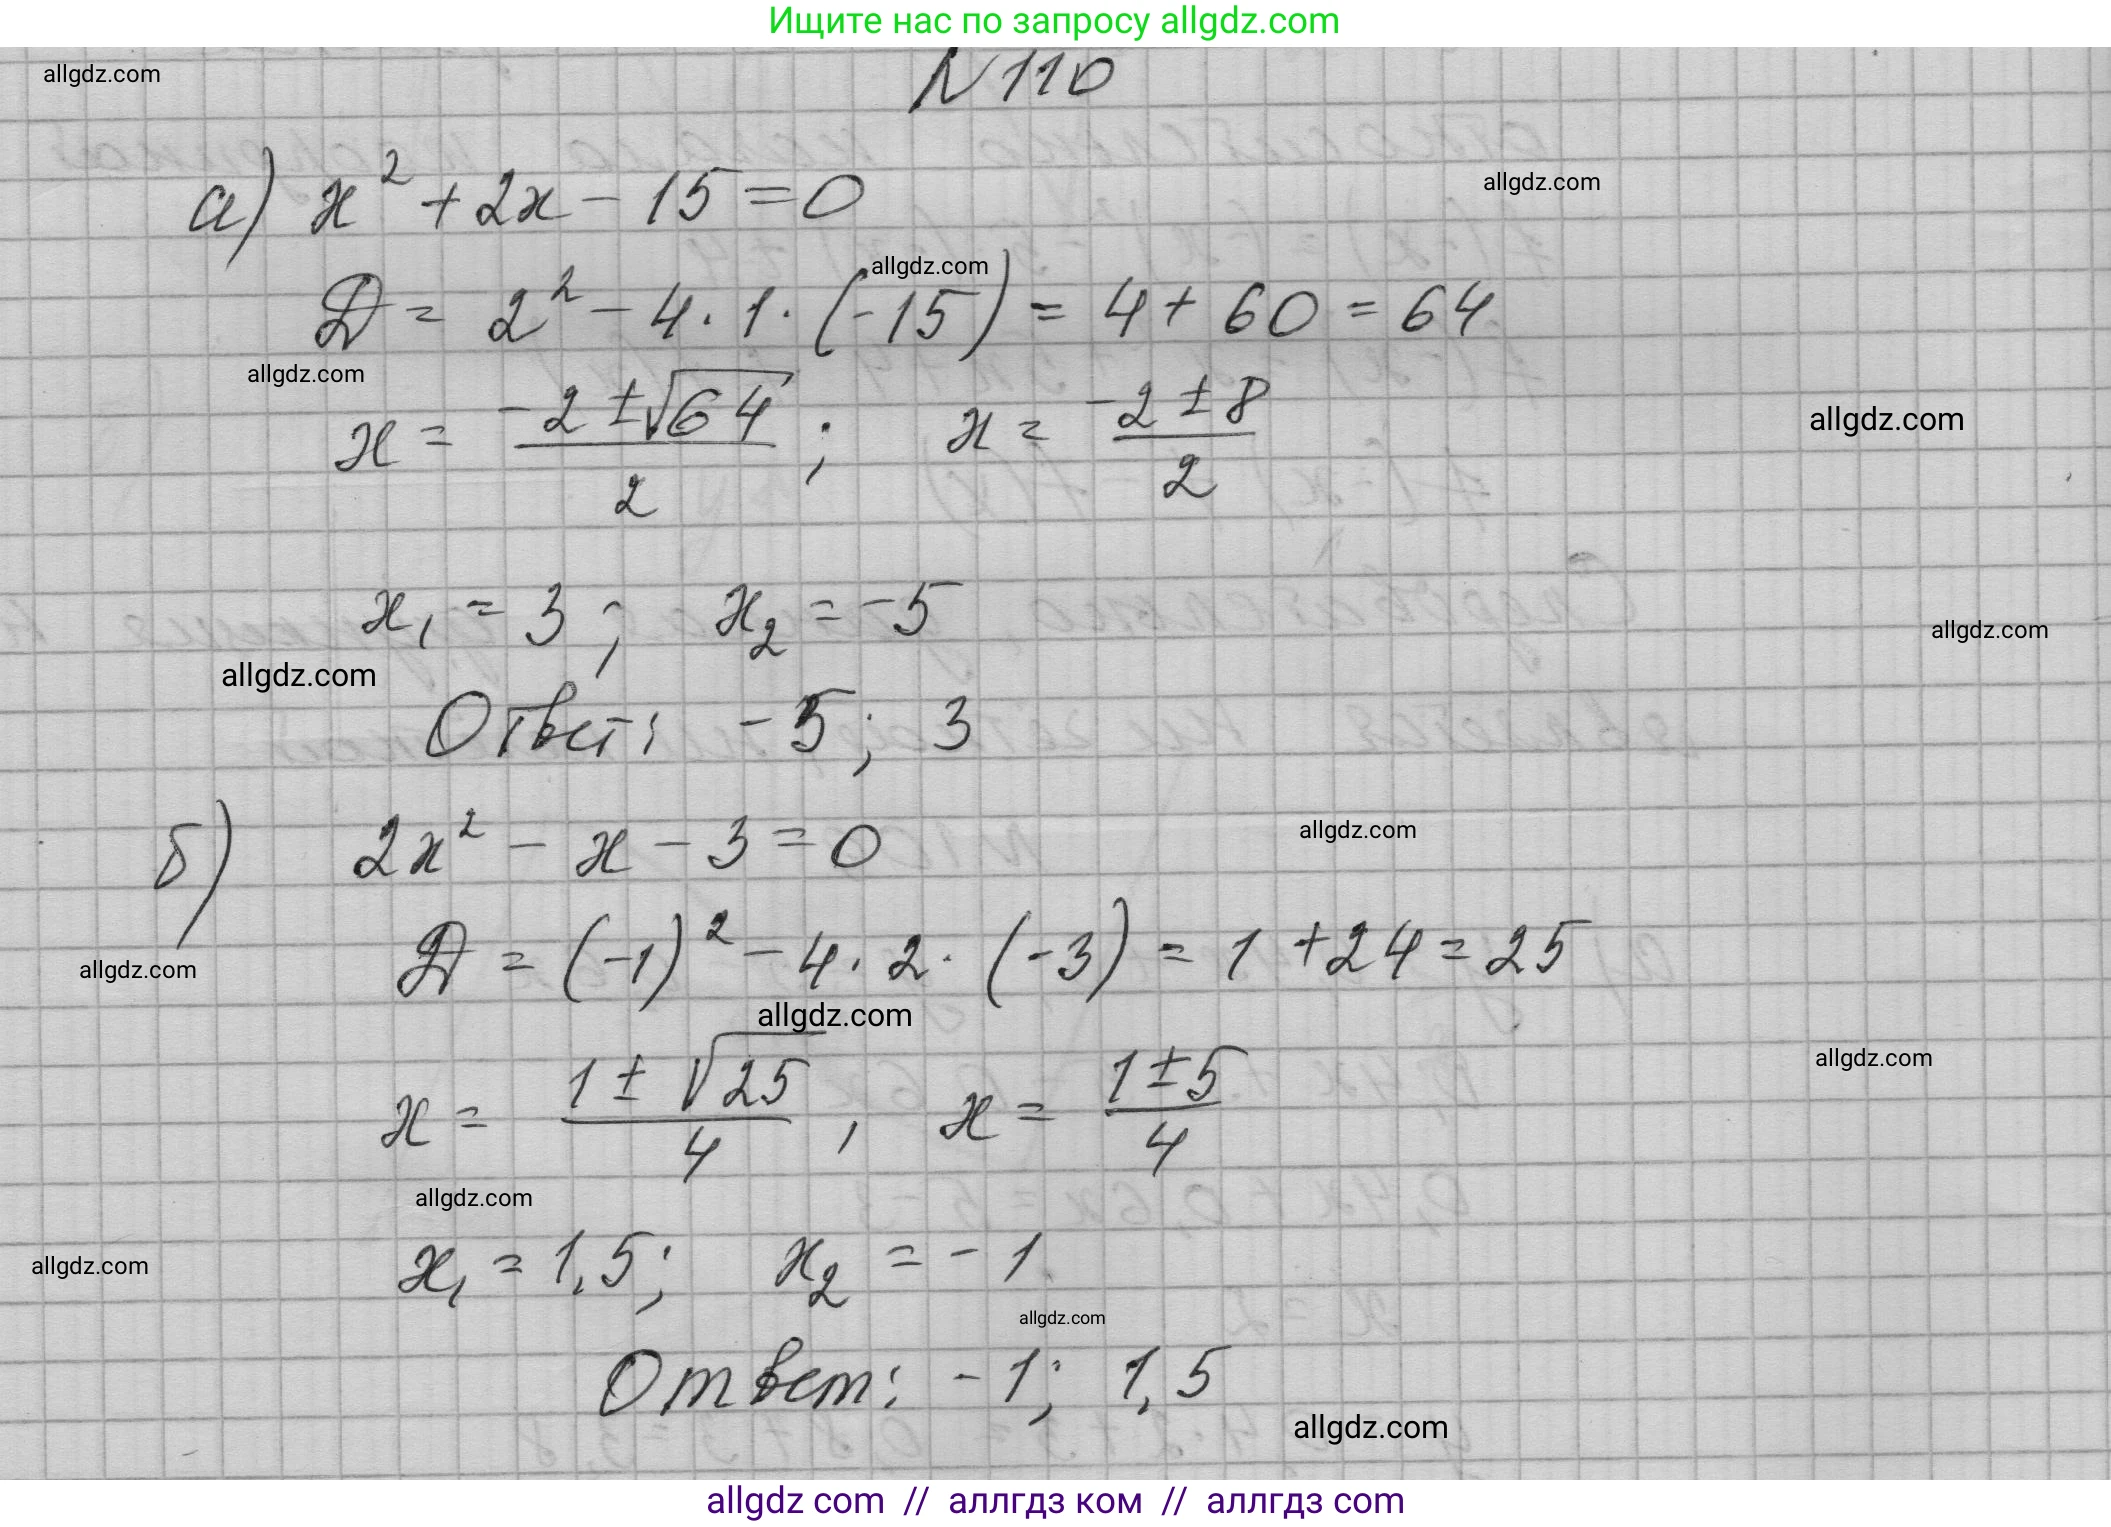 Ищите нас по запросу allgdz.com
N 110
allgdz.com
а) x² + 2x - 15 = 0
allgdz.com
allgdz.com
D = 2² - 4 · 1 · (-15) = 4 + 60 = 64
allgdz.com
x = (-2 ± √64)/2 ; x = (-2 ± 8)/2
allgdz.com
x₁ = 3 ; x₂ = -5
allgdz.com
allgdz.com
Ответ: -5 ; 3
б) 2x² - x - 3 = 0
allgdz.com
D = (-1)² - 4 · 2 · (-3) = 1 + 24 = 25
allgdz.com
allgdz.com
x = (1 ± √25)/4 , x = (1 ± 5)/4
allgdz.com
allgdz.com
x₁ = 1,5 ; x₂ = -1
allgdz.com
allgdz.com
Ответ: -1 ; 1,5
allgdz.com
allgdz com // аллгдз ком // аллгдз com